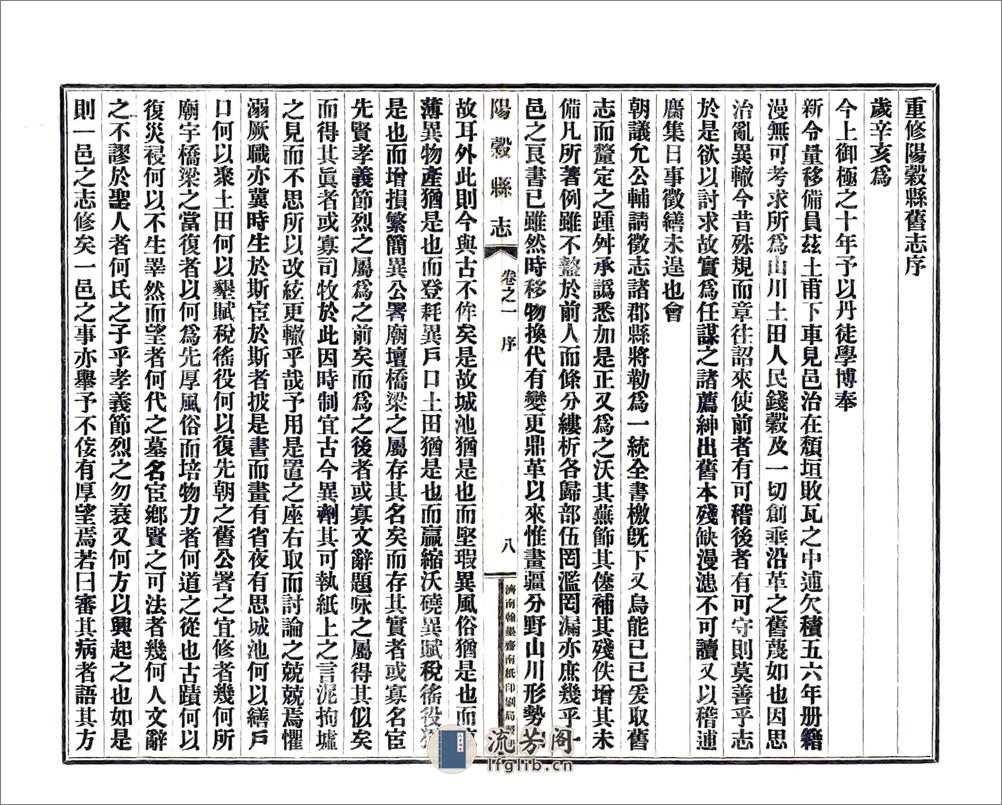 重修陽穀縣舊志序
歲辛亥爲
今上御極之十年予以丹徒學博奉
新令量移備員茲土甫下車見邑治在頹垣敗瓦之中逋欠積五六年册籍
漫無可考求所爲山川土田人民錢穀及一切創乘沿革之舊蔑如也因思
治亂異轍今昔殊規而章往詔來使前者有可稽後者有可守則莫善乎志
於是欲以討求故實爲任謀之諸薦紳出舊本殘缺漫漶不可讀又以稽逋
鳩集日事徵繕未遑也會
朝議允公輔請徵志諸郡縣將勒爲一統全書檄旣下又烏能已已爰取舊
志而釐定之踵舛承譌悉加是正又爲之沃其蕪飾其僿補其殘佚增其未
備凡所著例雖不盩於前人而條分縷析各歸部伍罔濫罔漏亦庶幾乎一
邑之良書已雖然時移物換代有變更鼎革以來惟畫疆分野山川形勢
陽穀縣志
卷之一 序
八
濟南翰墨齋南紙印刷局
故耳外此則今與古不侔矣是故城池猶是也而堅瑕異風俗猶是也而
薄異物產猶是也而登耗異戶口土田猶是也而贏縮沃磽異賦稅徭役
是也而增損繁簡異公署廟壇橋梁之屬存其名矣而存其實者或寡名宦
先賢孝義節烈之屬爲之前矣而爲之後者或寡文辭題咏之屬得其似矣
而得其眞者或寡司牧於此因時制宜古今異劑其可執紙上之言泥拘墟
之見而不思所以改絃更轍乎哉予用是置之座右取而討論之兢兢焉懼
溺厥職亦冀時生於斯宦於斯者披是書而晝有省夜有思城池何以繕戶
口何以聚土田何以墾賦稅徭役何以復先朝之舊公署之宜修者幾何所
廟宇橋梁之當復者以何爲先厚風俗而培物力者何道之從也古蹟何以
復災祲何以不生睪然而望者何代之墓名宦鄉賢之可法者幾何人文辭
之不謬於聖人者何氏之子乎孝義節烈之勿衰又何方以興起之也如是
則一邑之志修矣一邑之事亦舉予不佞有厚望焉若曰審其病者語其方
流芳閣
lfglib.cn